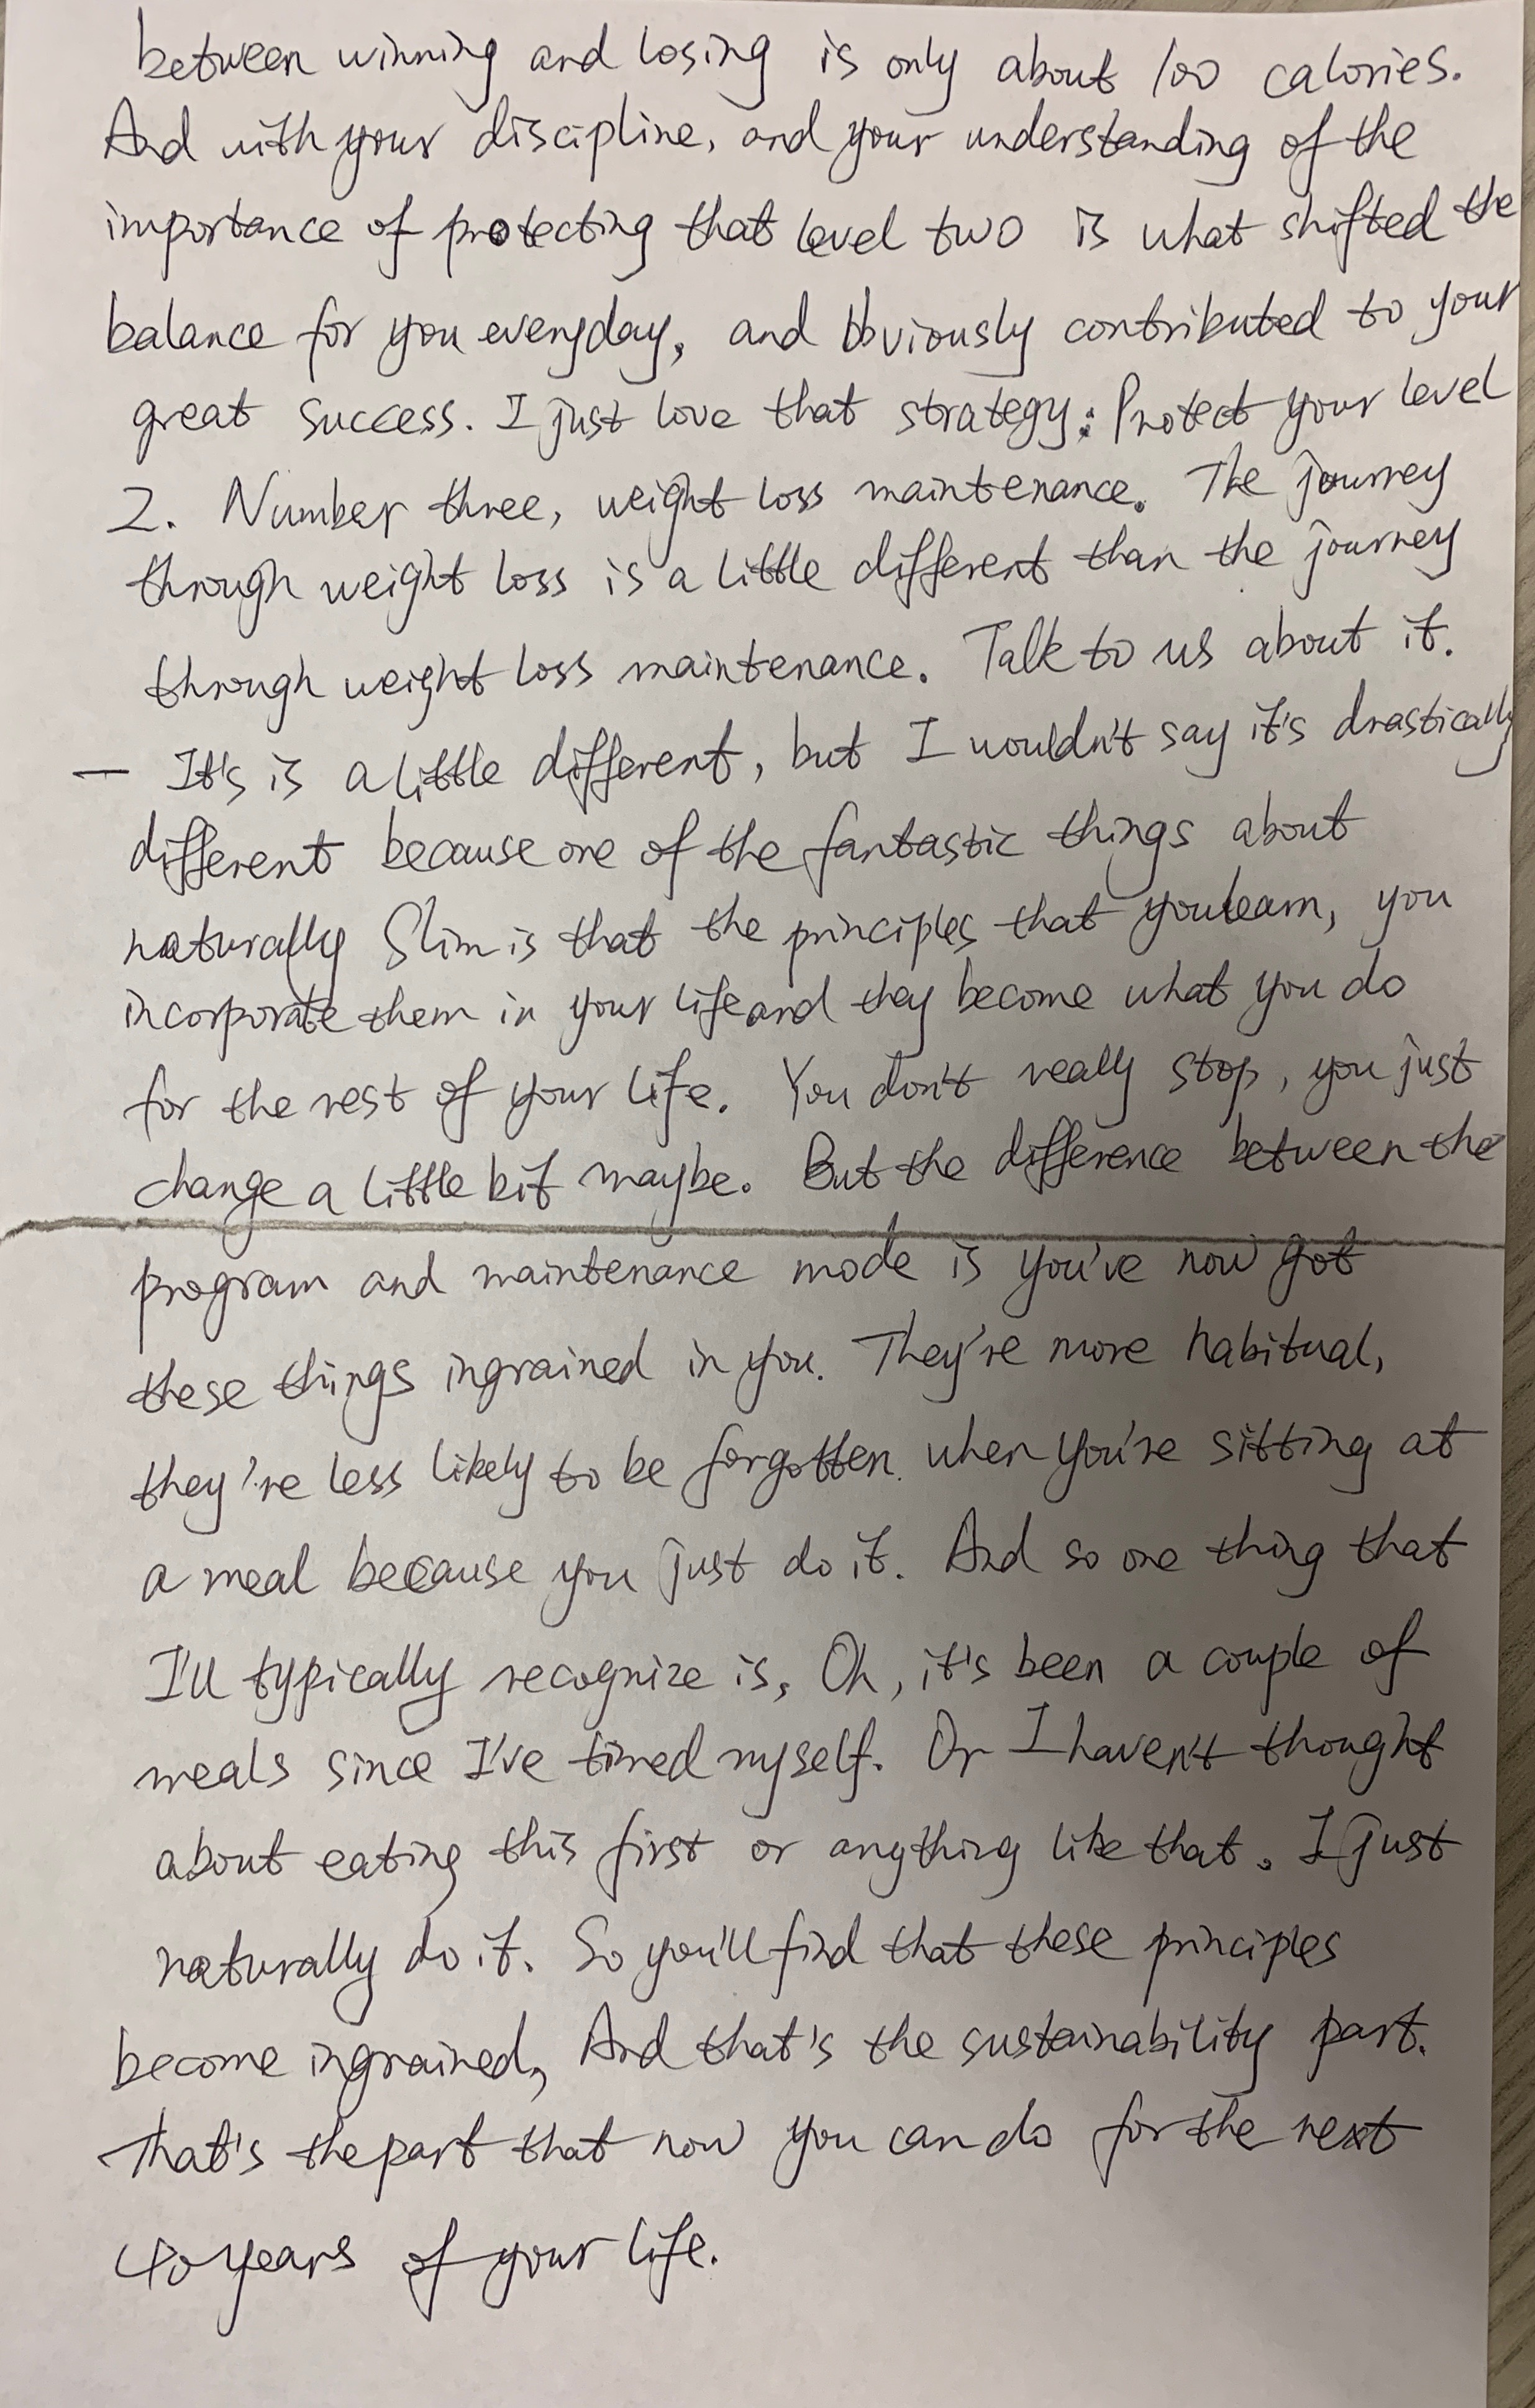 between winning and losing is only about 100 calories.
And with your discipline, and your understanding of the
importance of protecting that level two is what shifted the
balance for you everyday, and obviously contributed to your
great success. I just love that strategy: Protect your level
2. Number three, weight loss maintenance. The journey
through weight loss is a little different than the journey
through weight loss maintenance. Talk to us about it.
— It's is a little different, but I wouldn't say it's drastically
different because one of the fantastic things about
naturally Slim is that the principles that you learn, you
incorporate them in your life and they become what you do
for the rest of your life. You don't really stop, you just
change a little bit maybe. But the difference between the
program and maintenance mode is you've now got
these things ingrained in you. They're more habitual,
they're less likely to be forgotten when you're sitting at
a meal because you just do it. And so one thing that
I'll typically recognize is, Oh, it's been a couple of
meals since I've timed myself. Or I haven't thought
about eating this first or anything like that. I just
naturally do it. So you'll find that these principles
become ingrained, And that's the sustainability part.
That's the part that now you can do for the next
40 years of your life.